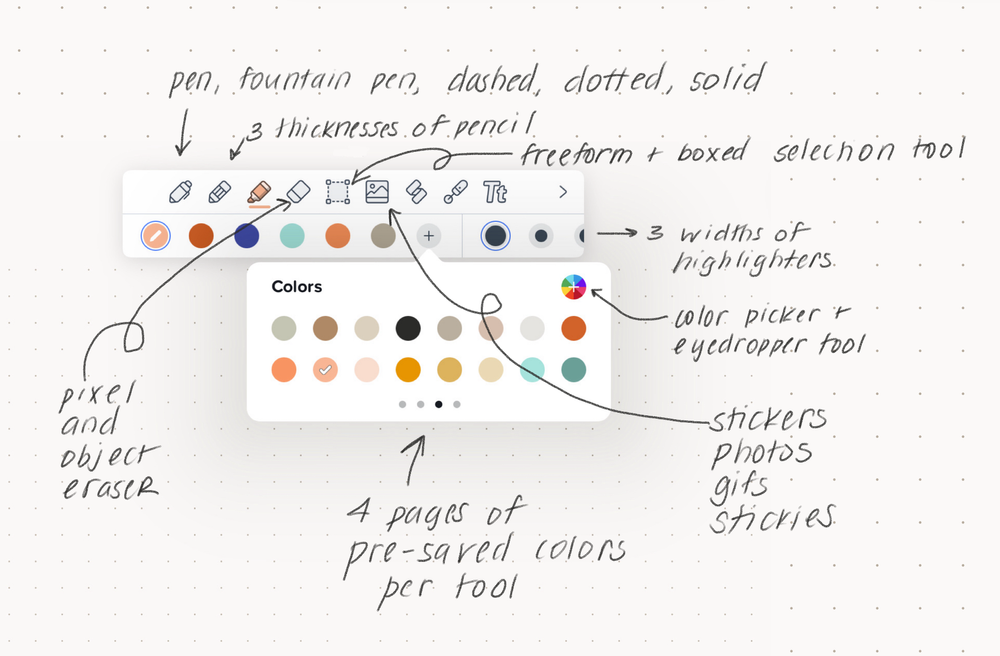 pen, fountain pen, dashed, dotted, solid
3 thicknesses of pencil
freeform + boxed selection tool
Tt
3 widths of
highlighters.
Colors
color picker +
eyedropper tool
pixel
and
object
eraser
stickers
photos
gifs
stickies
4 pages of
pre-saved colors
per tool